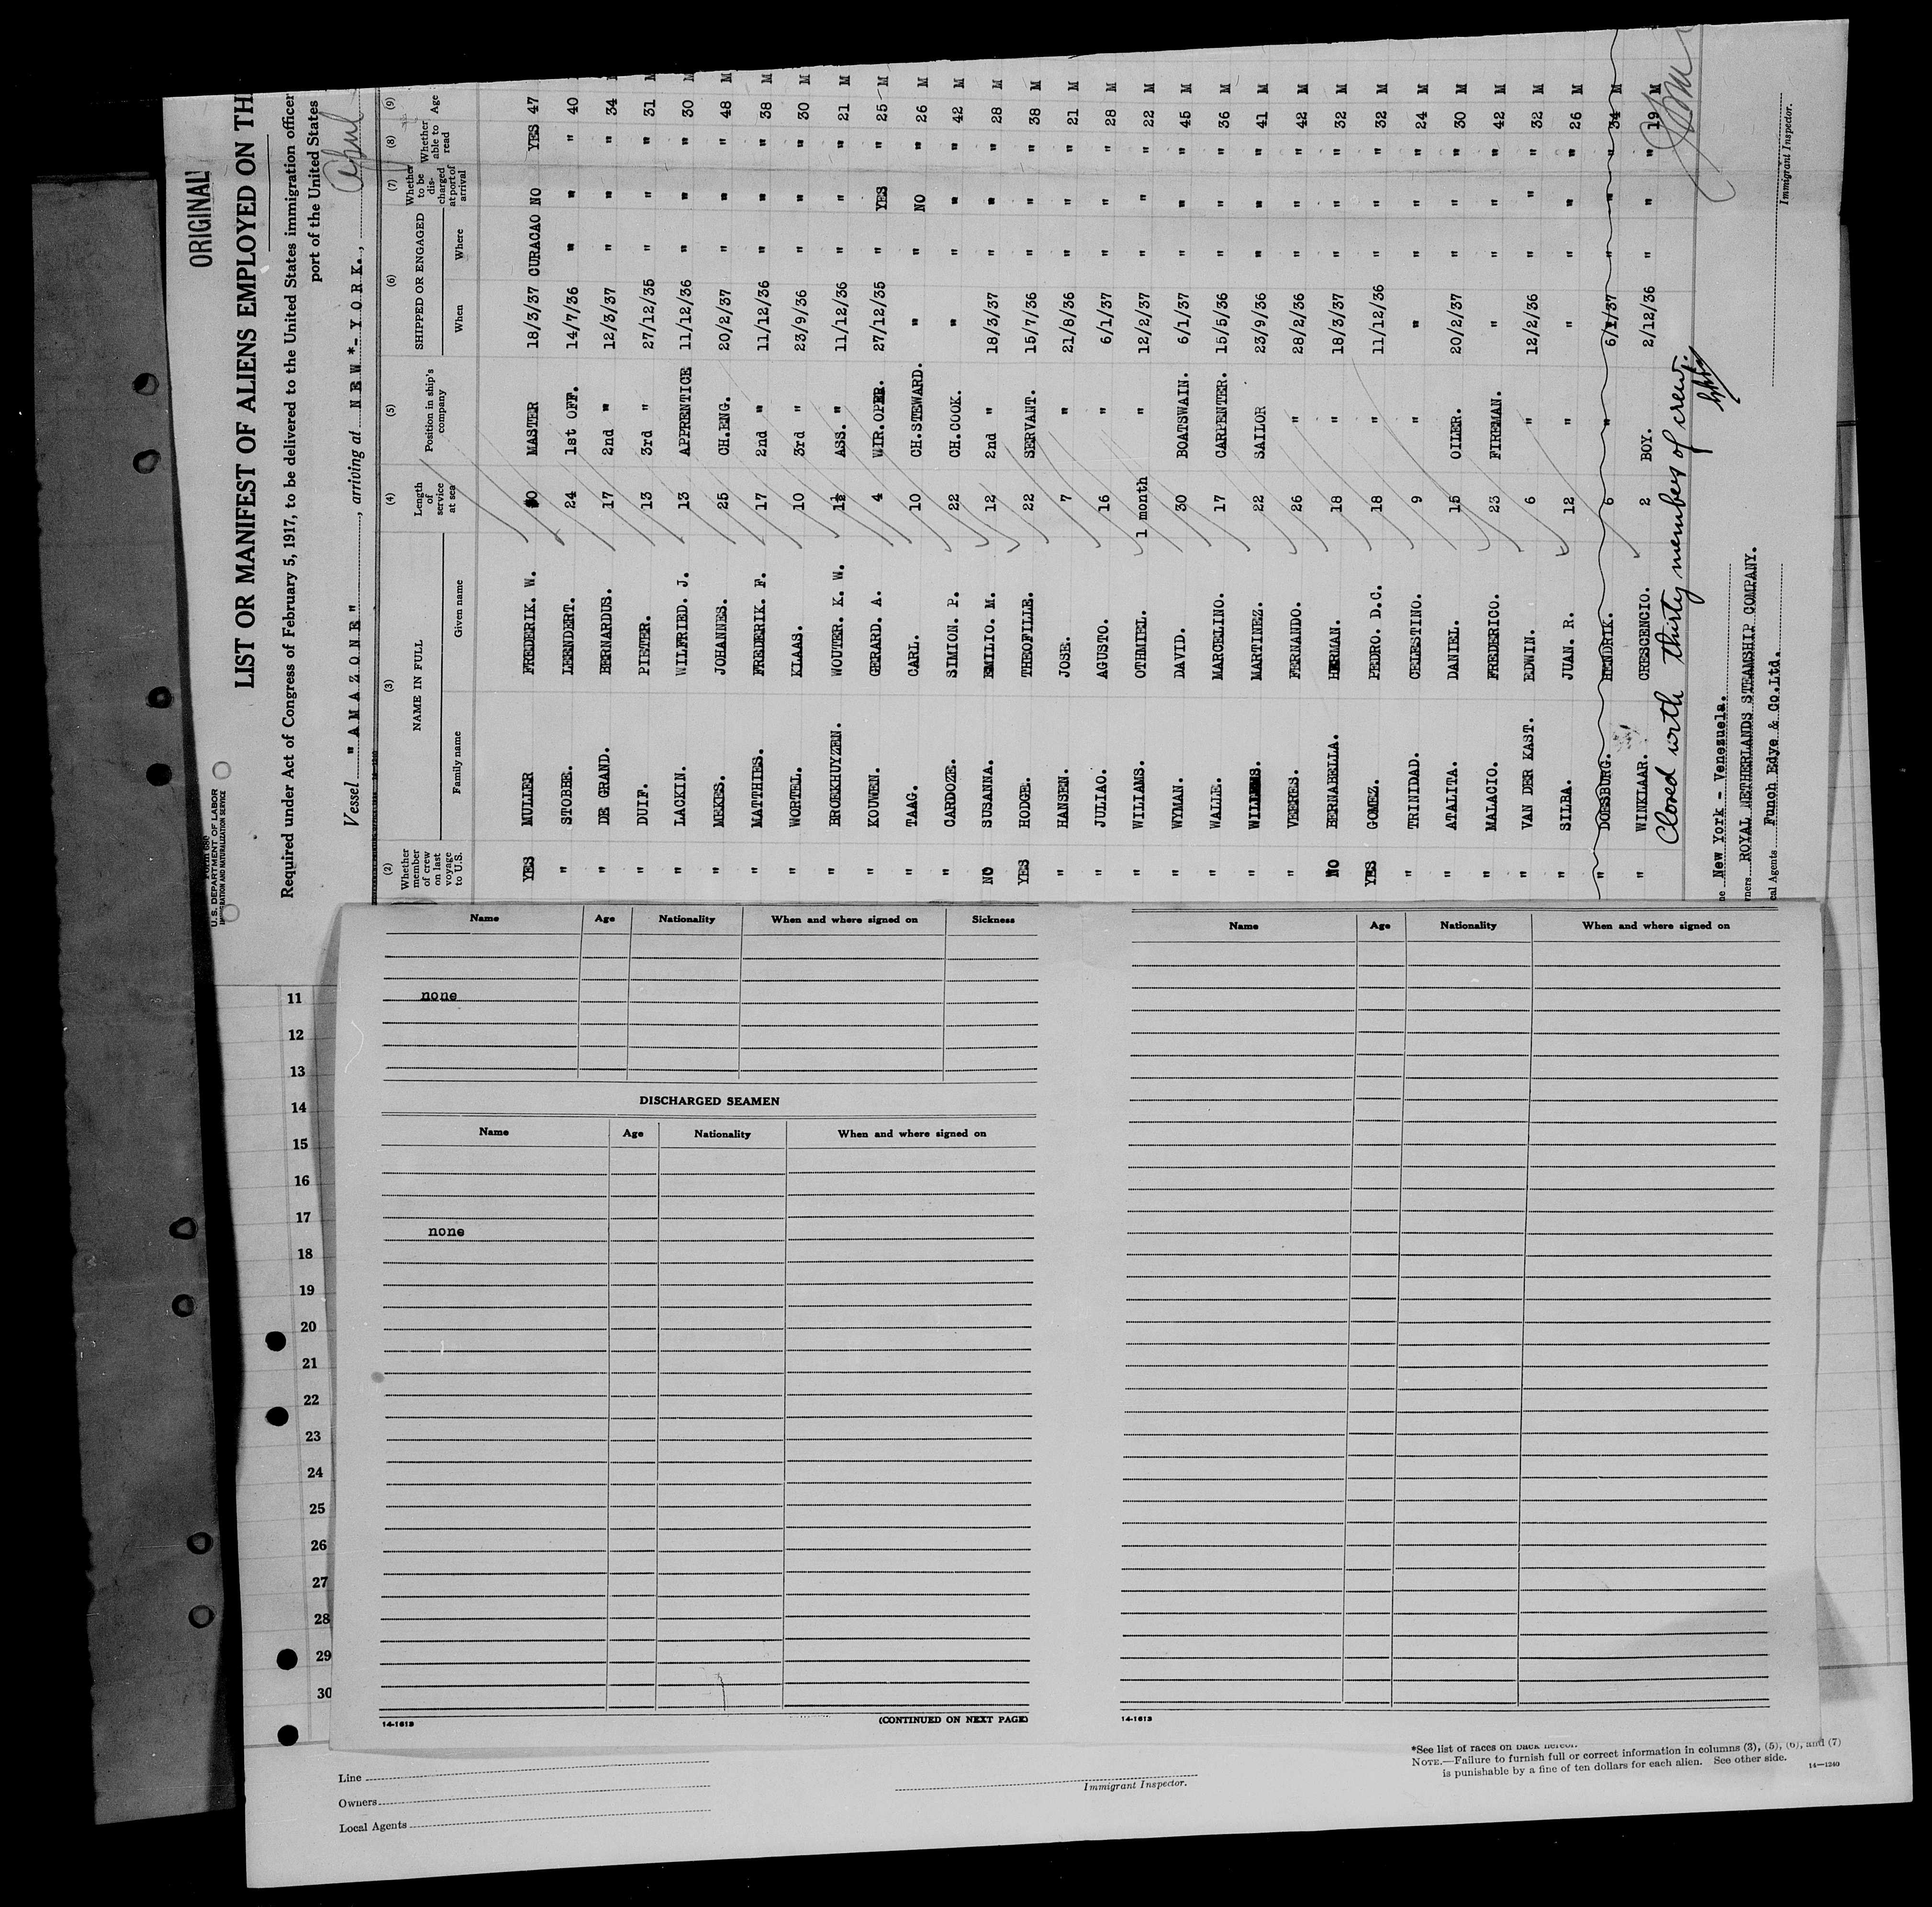 ORIGINAL
Form 689
U. S. DEPARTMENT OF LABOR
IMMIGRATION AND NATURALIZATION SERVICE
LIST OR MANIFEST OF ALIENS EMPLOYED ON TH
Required under Act of Congress of February 5, 1917, to be delivered to the United States immigration officer
port of the United States
Vessel "AMAZONE", arriving at NEW*-YORK., April
(2) (3) (4) (5) (6) (7) (8) (9)
Whether member of crew on last voyage to U.S. NAME IN FULL Family name Given name Length of service at sea Position in ship's company SHIPPED OR ENGAGED When Where Whether to be discharged at port of arrival Whether able to read Age
YES MULLER FREDERIK. W. MASTER 18/3/37 CURACAO NO YES 47
" STOBBE. LEENDERT. 24 1st OFF. 14/7/36 " " " 40
" DE GRAND. BERNARDUS. 17 2nd " 12/3/37 " " " 34
" DUIF. PIETER. 13 3rd " 27/12/35 " " " 31 M
" LACKIN. WILFRIED. J. 13 APPRENTICE 11/12/36 " " " 30 M
" MEKES. JOHANNES. 25 CH.ENG. 20/2/37 " " " 48 M
" MATTHIES. FREDERIK. F. 17 2nd " 11/12/36 " " " 38 M
" WORTEL. KLAAS. 10 3rd " 23/9/36 " " " 30 M
" BROEKHUYZEN. WOUTER. K. W. 1½ ASS. " 11/12/36 " " " 21 M
" KOUWEN. GERARD. A. 4 WIR.OPER. 27/12/35 " YES " 25 M
" TAAG. CARL. 10 CH.STEWARD. " " NO " 26 M
" CARDOZE. SIMION. P. 22 CH.COOK. " " " " 42 M
NO SUSANNA. EMILIO. M. 12 2nd " 18/3/37 " " " 28 M
YES HODGE. THEOFILLE. 22 SERVANT. 15/7/36 " " " 38 M
" HANSEN. JOSE. 7 " 21/8/36 " " " 21 M
" JULIAO. AGUSTO. 16 " 6/1/37 " " " 28 M
" WILIAMS. OTHMIEL. 1 month " 12/2/37 " " " 22 M
" WYMAN. DAVID. 30 BOATSWAIN. 6/1/37 " " " 45 M
" WALIE. MARCELINO. 17 CARPENTER. 15/5/36 " " " 36 M
" MARTINEZ. 22 SAILOR 23/9/36 " " " 41 M
" VEERES. FERNANDO. 26 " 28/2/36 " " " 42 M
NO BERNABELLA. HERMAN. 18 " 18/3/37 " " " 32 M
YES GOMEZ. PEDRO. D.C. 18 " 11/12/36 " " " 32 M
" TRINIDAD. CELESTINO. 9 " " " " " 24 M
" ATALITA. DANIEL. 15 OILER. 20/2/37 " " " 30 M
" MALACIO. FREDERICO. 23 FIREMAN. " " " " 42 M
" VAN DER KAST. EDWIN. 6 " 12/2/36 " " " 32 M
" SILBA. JUAN. R. 12 " " " " " 26 M
" DOESBURG. HENDRIK. 6 " 6/1/37 " " " 34 M
" WINKLAAR. CRESCENCIO. 2 BOY. 2/12/36 " " " 19 M
Closed with thirty members of crew.
ne New York - Venezuela.
wners ROYAL NETHERLANDS STEAMSHIP COMPANY.
cal Agents Funch Edye & Co.Ltd.
Immigrant Inspector.
Name Age Nationality When and where signed on Sickness
none
DISCHARGED SEAMEN
Name Age Nationality When and where signed on
none
14-1613
(CONTINUED ON NEXT PAGE)
Name Age Nationality When and where signed on
14-1613
11
12
13
14
15
16
17
18
19
20
21
22
23
24
25
26
27
28
29
30
Line
Owners
Local Agents
Immigrant Inspector.
*See list of races on back hereof.
NOTE.—Failure to furnish full or correct information in columns (3), (5), (6), and (7)
is punishable by a fine of ten dollars for each alien. See other side.
14—1240